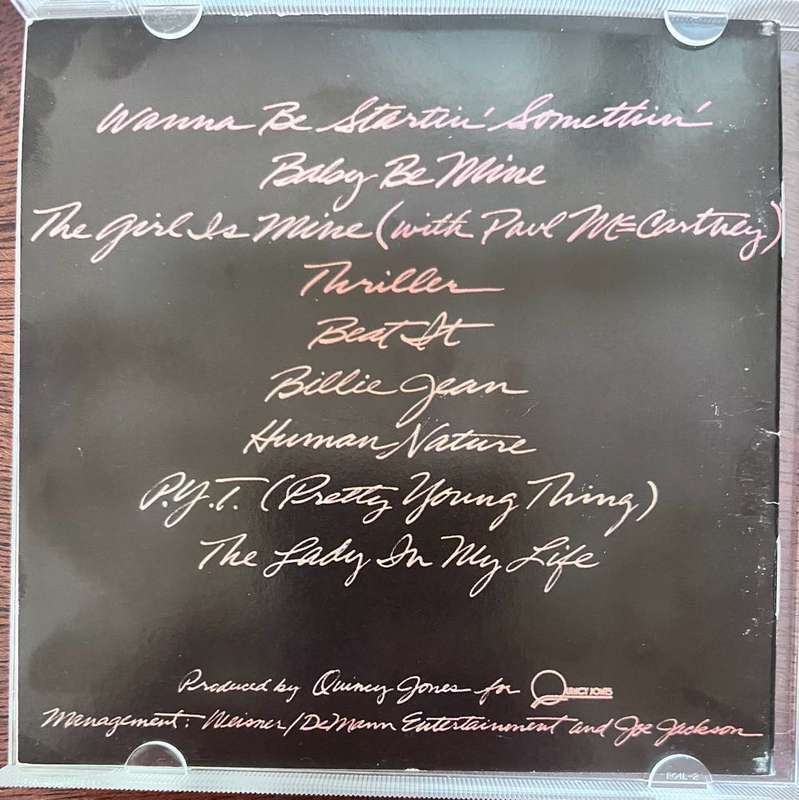 Wanna Be Startin' Somethin'
Baby Be Mine
The Girl Is Mine (with Paul McCartney)
Thriller
Beat It
Billie Jean
Human Nature
P.Y.T. (Pretty Young Thing)
The Lady In My Life
Produced by Quincy Jones for QUINCY JONES
Management: Weisner/DeMann Entertainment and Joe Jackson